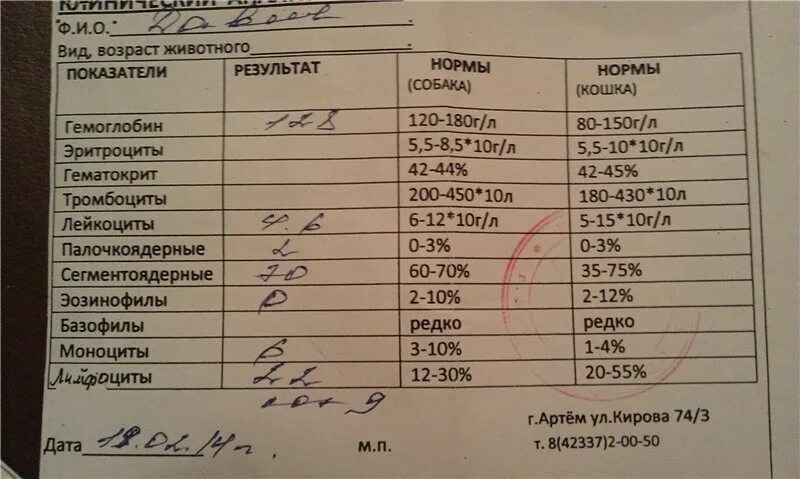 КЛИНИЧЕСКИЙ
Ф.И.О.
Вид, возраст животного
ПОКАЗАТЕЛИ РЕЗУЛЬТАТ НОРМЫ (СОБАКА) НОРМЫ (КОШКА)
Гемоглобин 128 120-180г/л 80-150г/л
Эритроциты 5,5-8,5*10г/л 5,5-10*10г/л
Гематокрит 42-44% 42-45%
Тромбоциты 200-450*10л 180-430*10л
Лейкоциты 4.6 6-12*10г/л 5-15*10г/л
Палочкоядерные 2 0-3% 0-3%
Сегментоядерные 70 60-70% 35-75%
Эозинофилы 0 2-10% 2-12%
Базофилы редко редко
Моноциты 6 3-10% 1-4%
Лимфоциты 22 12-30% 20-55%
9
г.Артём ул.Кирова 74/3
Дата 18.02.14г. М.П. т. 8(42337)2-00-50